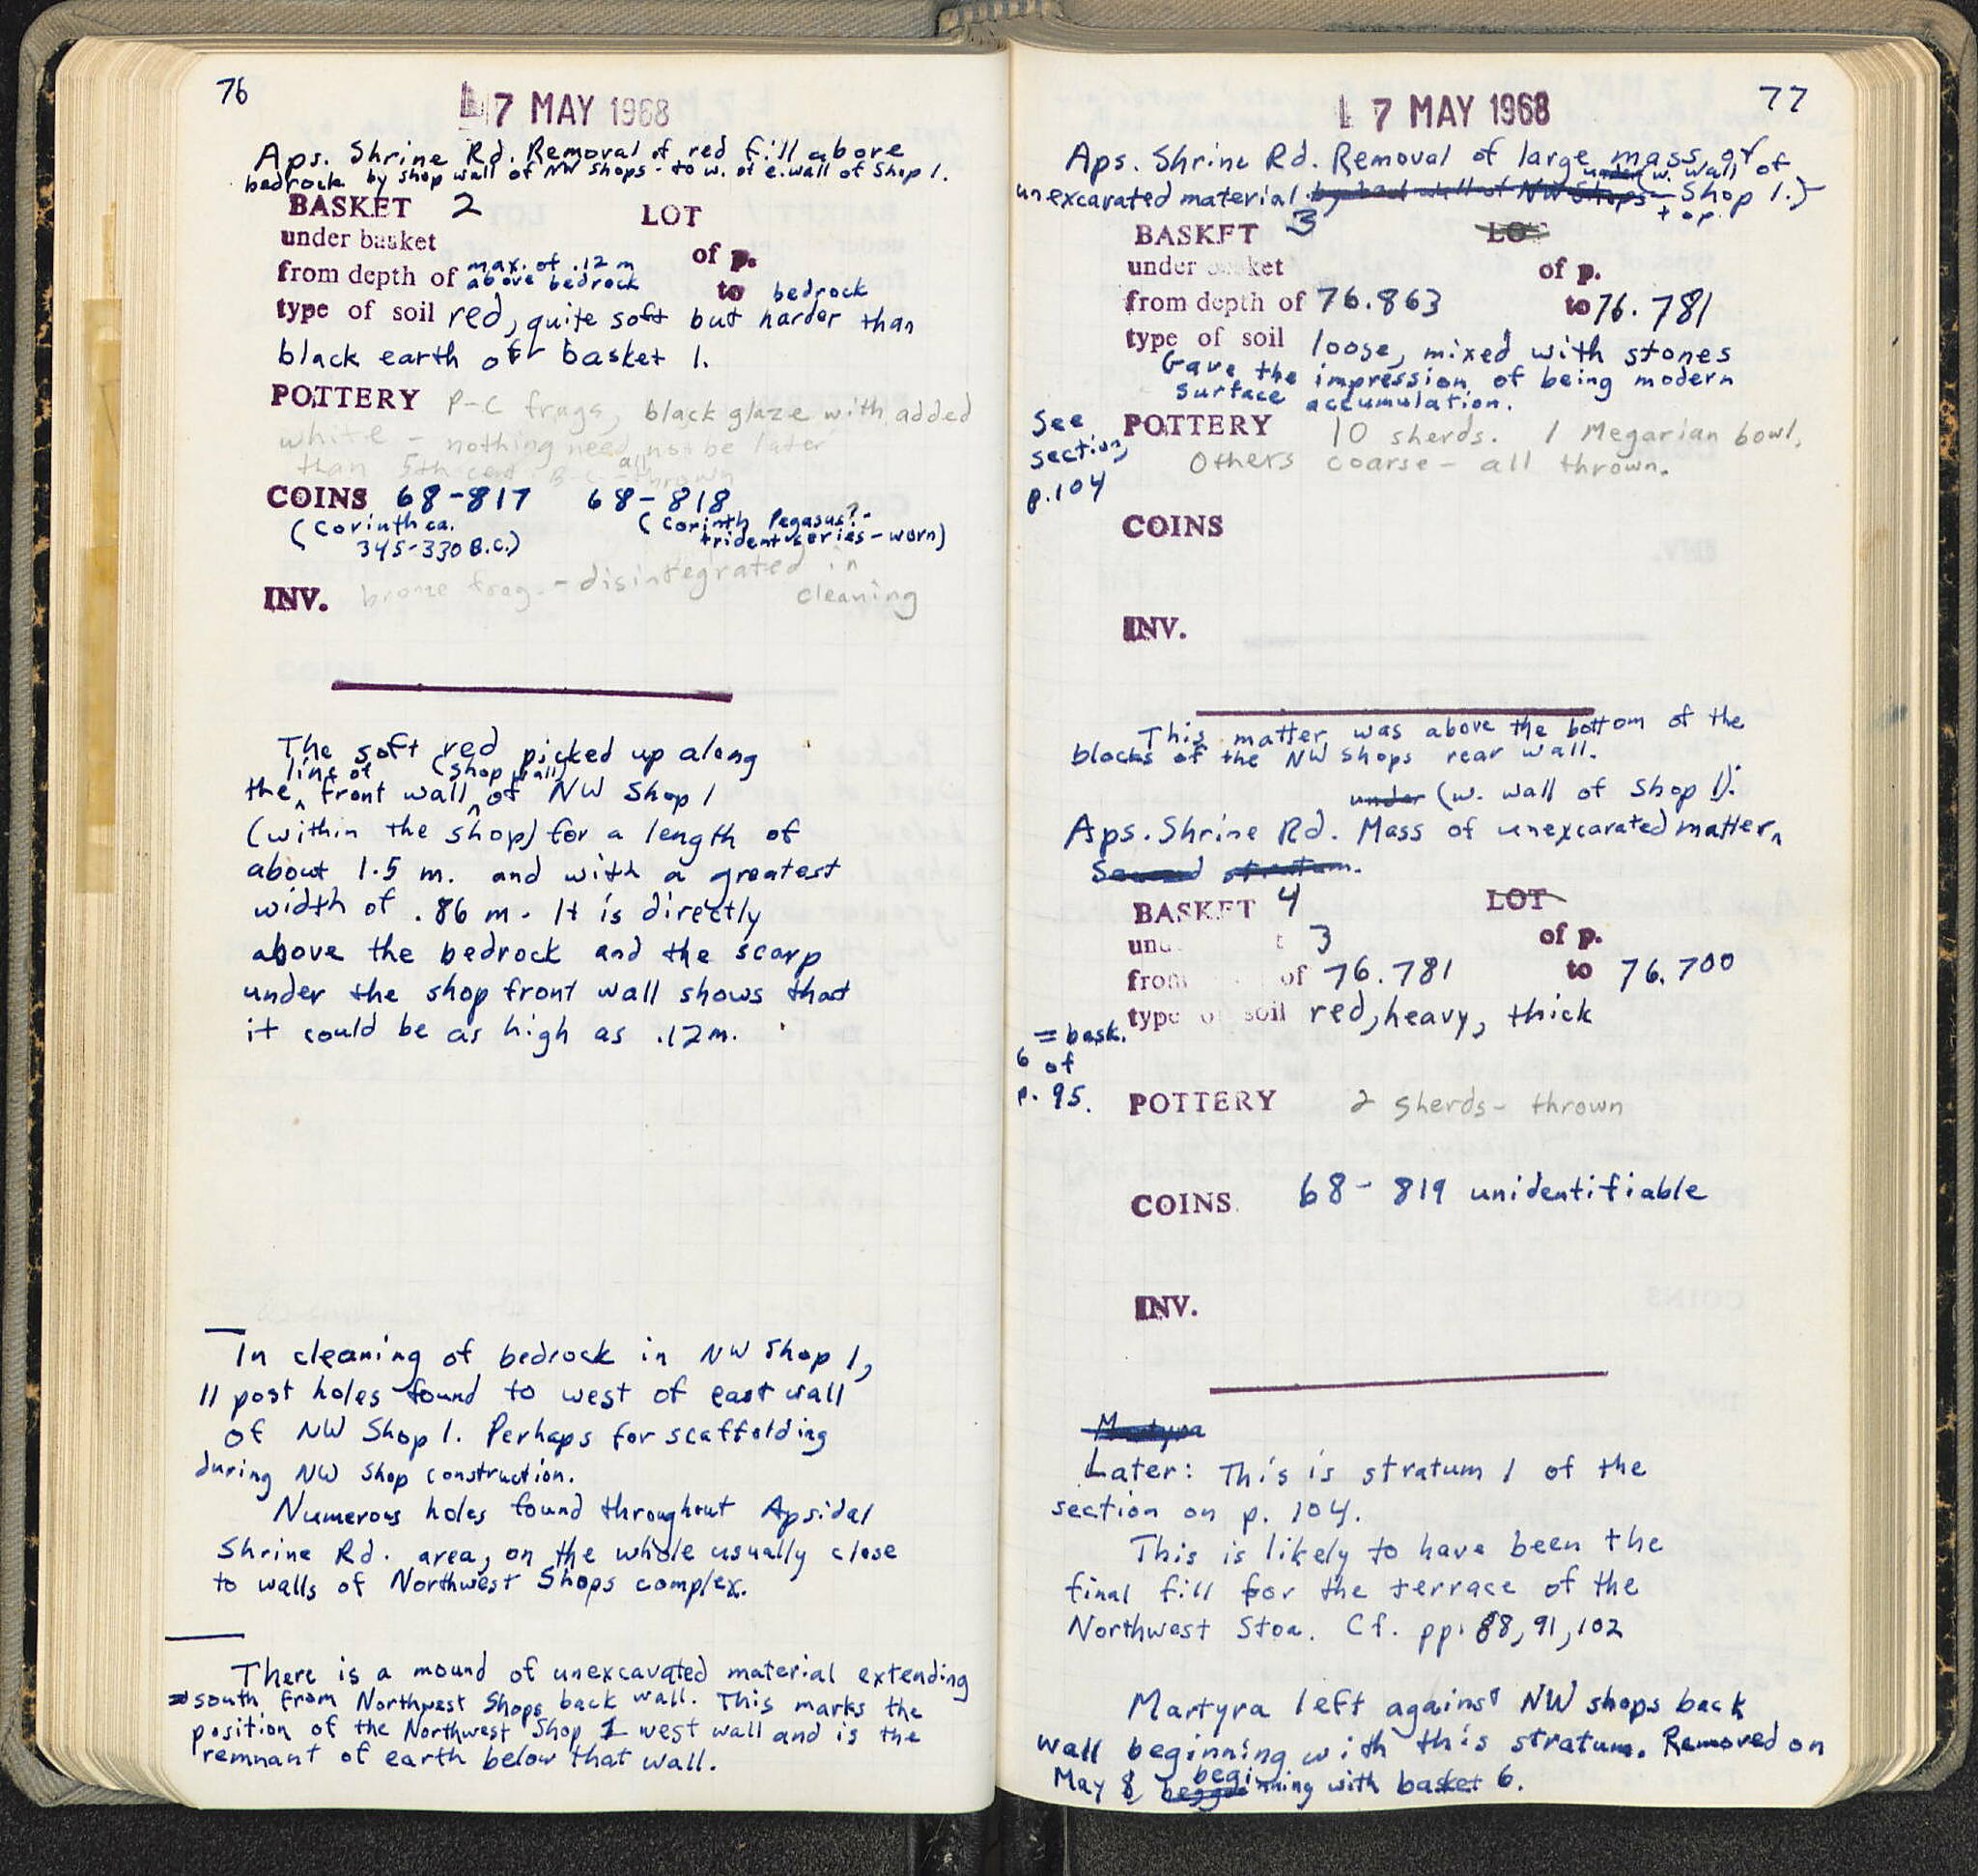 76
L 7 MAY 1968
Aps. Shrine Rd. Removal of red fill above
bedrock by shop wall of NW Shops - to w. of e. wall of Shop 1.
BASKET 2 LOT
under basket
of p.
from depth of max. of .12 m above bedrock to bedrock
type of soil red, quite soft but harder than
black earth of basket 1.
POTTERY P-C frags, black glaze with added
white - nothing need not be later
than 5th cent. B.C. - all thrown
COINS 68-817 68-818
(Corinth ca. (Corinth Pegasus? -
345-330 B.C.) trident series - worn)
INV. bronze frag. - disintegrated in
cleaning
The soft red picked up along
line of (shop wall)
the ^ front wall ^ of NW Shop 1
(within the shop) for a length of
about 1.5 m. and with a greatest
width of .86 m. It is directly
above the bedrock and the scarp
under the shop front wall shows that
it could be as high as .12 m.
In cleaning of bedrock in NW Shop 1,
11 post holes found to west of east wall
of NW Shop 1. Perhaps for scaffolding
during NW Shop construction.
Numerous holes found throughout Apsidal
Shrine Rd. area, on the whole usually close
to walls of Northwest Shops complex.
There is a mound of unexcavated material extending
south from Northwest Shops back wall. This marks the
position of the Northwest Shop 1 west wall and is the
remnant of earth below that wall.
77
L 7 MAY 1968
Aps. Shrine Rd. Removal of large mass of
under (w. wall of
unexcavated material by back wall of NW Shops - Shop 1.)
+ op.
BASKET 3 LOT
under basket
of p.
from depth of 76.863 to 76.781
type of soil loose, mixed with stones
Gave the impression of being modern
surface accumulation.
See
section,
p. 104
POTTERY 10 sherds. 1 Megarian bowl,
Others coarse - all thrown.
COINS
INV.
This matter was above the bottom of the
blocks of the NW Shops rear wall.
under (w. wall of Shop 1).
Aps. Shrine Rd. Mass of unexcavated matter ^
Second stratum.
BASKET 4 LOT
und t 3 of p.
from of 76.781 to 76.700
type of soil red, heavy, thick
= bask.
6 of
p. 95.
POTTERY 2 sherds - thrown
COINS 68-819 unidentifiable
INV.
Martyra
Later: This is stratum 1 of the
section on p. 104.
This is likely to have been the
final fill for the terrace of the
Northwest Stoa. Cf. pp. 88, 91, 102
Martyra left against NW shops back
wall beginning with this stratum. Removed on
May 8 beginning with basket 6.